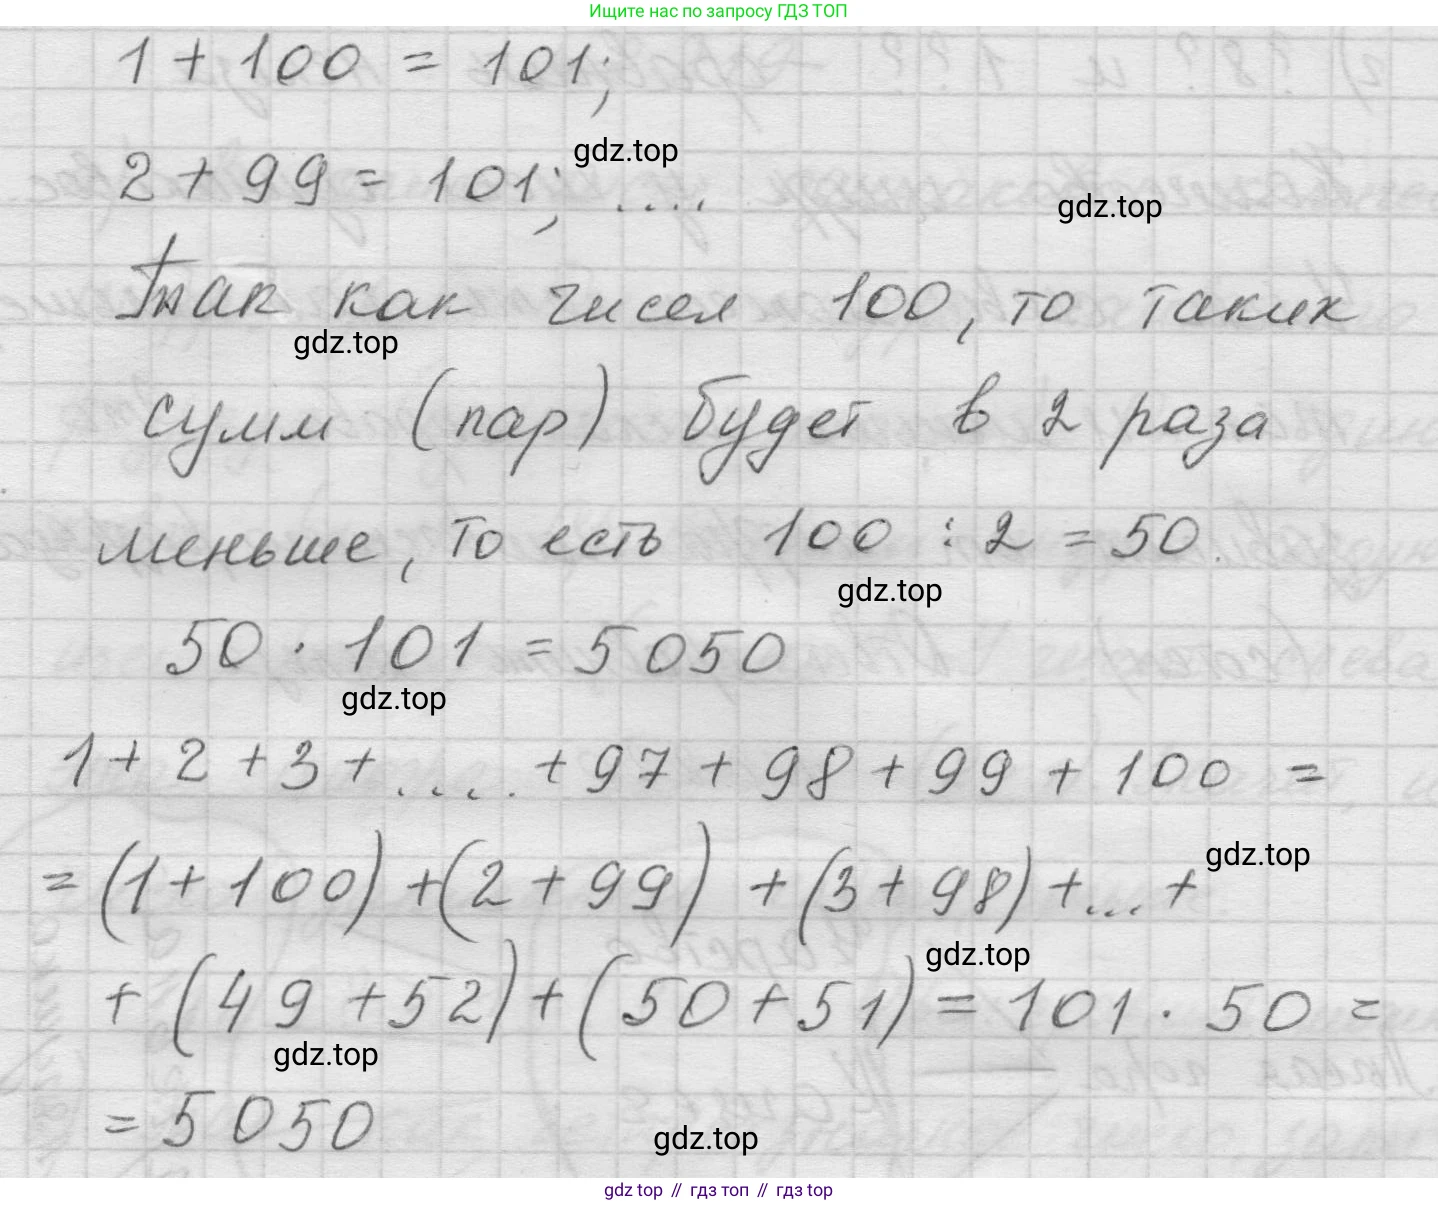 Ищите нас по запросу ГДЗ ТОП
1 + 100 = 101;
gdz.top
2 + 99 = 101; ....
gdz.top
Так как чисел 100, то таких
gdz.top
сумм (пар) будет в 2 раза
меньше, то есть 100 : 2 = 50.
gdz.top
50 · 101 = 5050
gdz.top
1 + 2 + 3 + .... + 97 + 98 + 99 + 100 =
= (1 + 100) + (2 + 99) + (3 + 98) + ... +
gdz.top
+ (49 + 52) + (50 + 51) = 101 · 50 =
gdz.top
gdz.top
= 5050
gdz.top
gdz top // гдз топ // гдз top